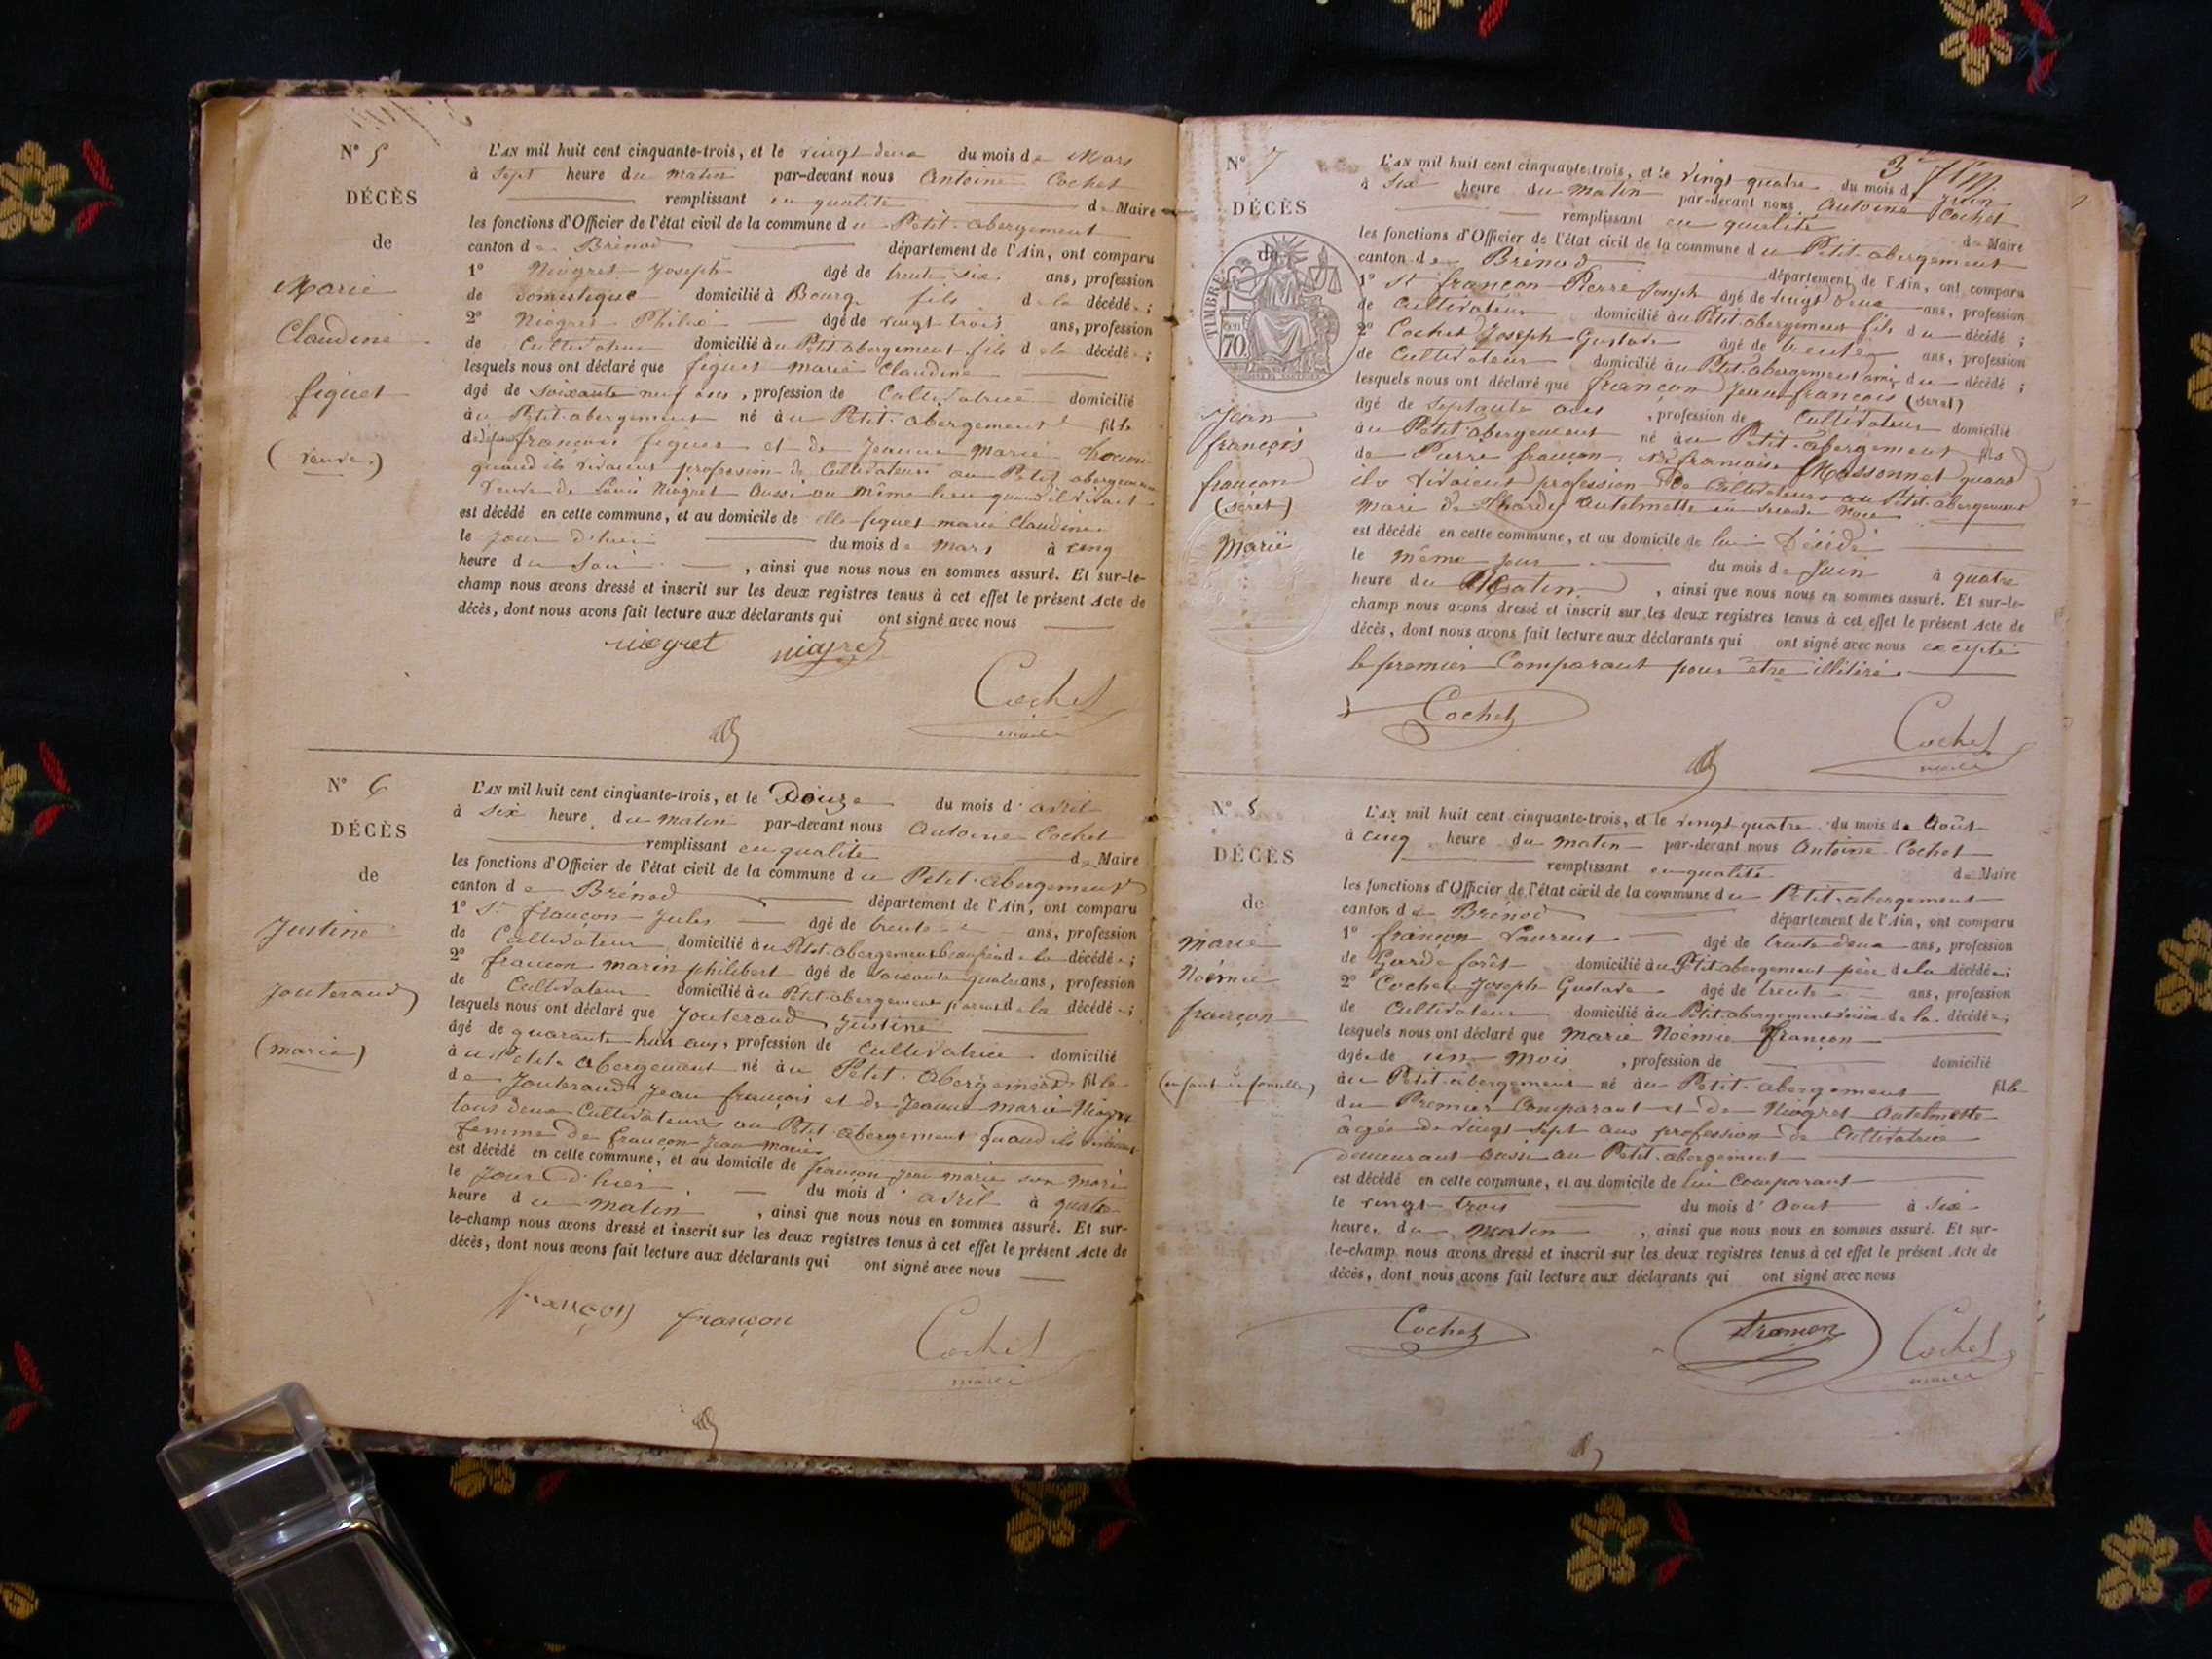 N° 5
DÉCÈS
de
Marie
Claudine
figuet
(veuve)
L'AN mil huit cent cinquante-trois, et le vingt deux du mois de Mars
à sept heure du matin par-devant nous Antoine Cochet
remplissant en qualité de Maire
les fonctions d'Officier de l'état civil de la commune du Petit-abergement
canton de Brénod département de l'Ain, ont comparu
1° Niogret Joseph âgé de trente six ans, profession
de domestique domicilié à Bourg fils de la décédée;
2° Niogret âgé de vingt trois ans, profession
de Cultivateur domicilié au Petit abergement fils de la décédée;
lesquels nous ont déclaré que figuet marie Claudine
âgé de soixante neuf ans, profession de Cultivatrice domicilié
au Petit-abergement né au Petit-abergement fille
de françois figuet et de Jeanne Marie
quand ils vivaient profession de Cultivateurs au Petit abergement
Veuve de Louis Niogret aussi au même lieu quand il vivait
est décédé en cette commune, et au domicile de elle figuet marie Claudine
le jour d'hier du mois de mars à cinq
heure du soir, ainsi que nous nous en sommes assuré. Et sur-le-
champ nous avons dressé et inscrit sur les deux registres tenus à cet effet le présent Acte de
décès, dont nous avons fait lecture aux déclarants qui ont signé avec nous
niogret niogret
Cochet
maire
N° 6
DÉCÈS
de
Justine
Jouteraud
(marie)
L'AN mil huit cent cinquante-trois, et le Douze du mois d'avril
à six heure du matin par-devant nous Antoine Cochet
remplissant en qualité de Maire
les fonctions d'Officier de l'état civil de la commune du Petit-abergement
canton de Brénod département de l'Ain, ont comparu
1° St françon Jules âgé de trente ans, profession
de Cultivateur domicilié au Petit-abergement beaufrère de la décédée;
2° françon marin philibert âgé de soixante quatre ans, profession
de Cultivateur domicilié au Petit abergement parent de la décédée;
lesquels nous ont déclaré que Jouteraud Justine
âgé de quarante huit ans, profession de Cultivatrice domicilié
au Petit-abergement né au Petit-abergement fille
de Jouteraud Jean françois et de Jeanne marie Niogret
tous deux Cultivateurs au Petit abergement quand ils vivaient
femme de françon Jean Marie
est décédé en cette commune, et au domicile de françon Jean marie son mari
le jour d'hier du mois d'avril à quatre
heure du matin, ainsi que nous nous en sommes assuré. Et sur-
le-champ nous avons dressé et inscrit sur les deux registres tenus à cet effet le présent Acte de
décès, dont nous avons fait lecture aux déclarants qui ont signé avec nous
françon françon
Cochet
maire
3e
N° 7
DÉCÈS
de
TIMBRE
70
Jean
françois
françon
(seret)
Marié
L'AN mil huit cent cinquante-trois, et le vingt quatre du mois de Juin
à six heure du matin par-devant nous Antoine Cochet
remplissant en qualité de Maire
les fonctions d'Officier de l'état civil de la commune du Petit-abergement
canton de Brénod département de l'Ain, ont comparu
1° St françon Pierre Joseph âgé de vingt deux ans, profession
de Cultivateur domicilié au Petit-abergement fils du décédé;
2° Cochet Joseph Gustave âgé de trente ans, profession
de Cultivateur domicilié au Petit-abergement ami du décédé;
lesquels nous ont déclaré que françon Jean françois (seret)
âgé de septante ans, profession de Cultivateur domicilié
au Petit abergement né au Petit-abergement fils
de Pierre françon et de françoise Massonnet quand
ils vivaient profession de Cultivateurs au Petit-abergement
mari de Antelmette en seconde Noce
est décédé en cette commune, et au domicile de lui Décédé
le même jour du mois de Juin à quatre
heure du Matin, ainsi que nous nous en sommes assuré. Et sur-le-
champ nous avons dressé et inscrit sur les deux registres tenus à cet effet le présent Acte de
décès, dont nous avons fait lecture aux déclarants qui ont signé avec nous excepté
le premier Comparant pour être illitéré
Cochet
Cochet
maire
N° 8
DÉCÈS
de
Marie
Noémie
françon
L'AN mil huit cent cinquante-trois, et le vingt quatre du mois de Août
à cinq heure du matin par-devant nous Antoine Cochet
remplissant en qualité de Maire
les fonctions d'Officier de l'état civil de la commune du Petit-abergement
canton de Brénod département de l'Ain, ont comparu
1° françon Laurent âgé de trente deux ans, profession
de Garde forêt domicilié au Petit abergement père de la décédée;
2° Cochet Joseph Gustave âgé de trente ans, profession
de Cultivateur domicilié au Petit-abergement voisin de la décédée;
lesquels nous ont déclaré que Marie Noémie françon
âgée de un mois, profession de domicilié
au Petit-abergement né au Petit-abergement fille
du Premier Comparant et de Niogret Antelmette
âgée de vingt sept ans profession de Cultivatrice
demeurant aussi au Petit-abergement
est décédé en cette commune, et au domicile de lui Comparant
le vingt trois du mois d'Aout à six
heure du Matin, ainsi que nous nous en sommes assuré. Et sur-
le-champ nous avons dressé et inscrit sur les deux registres tenus à cet effet le présent Acte de
décès, dont nous avons fait lecture aux déclarants qui ont signé avec nous
Cochet françon Cochet
maire